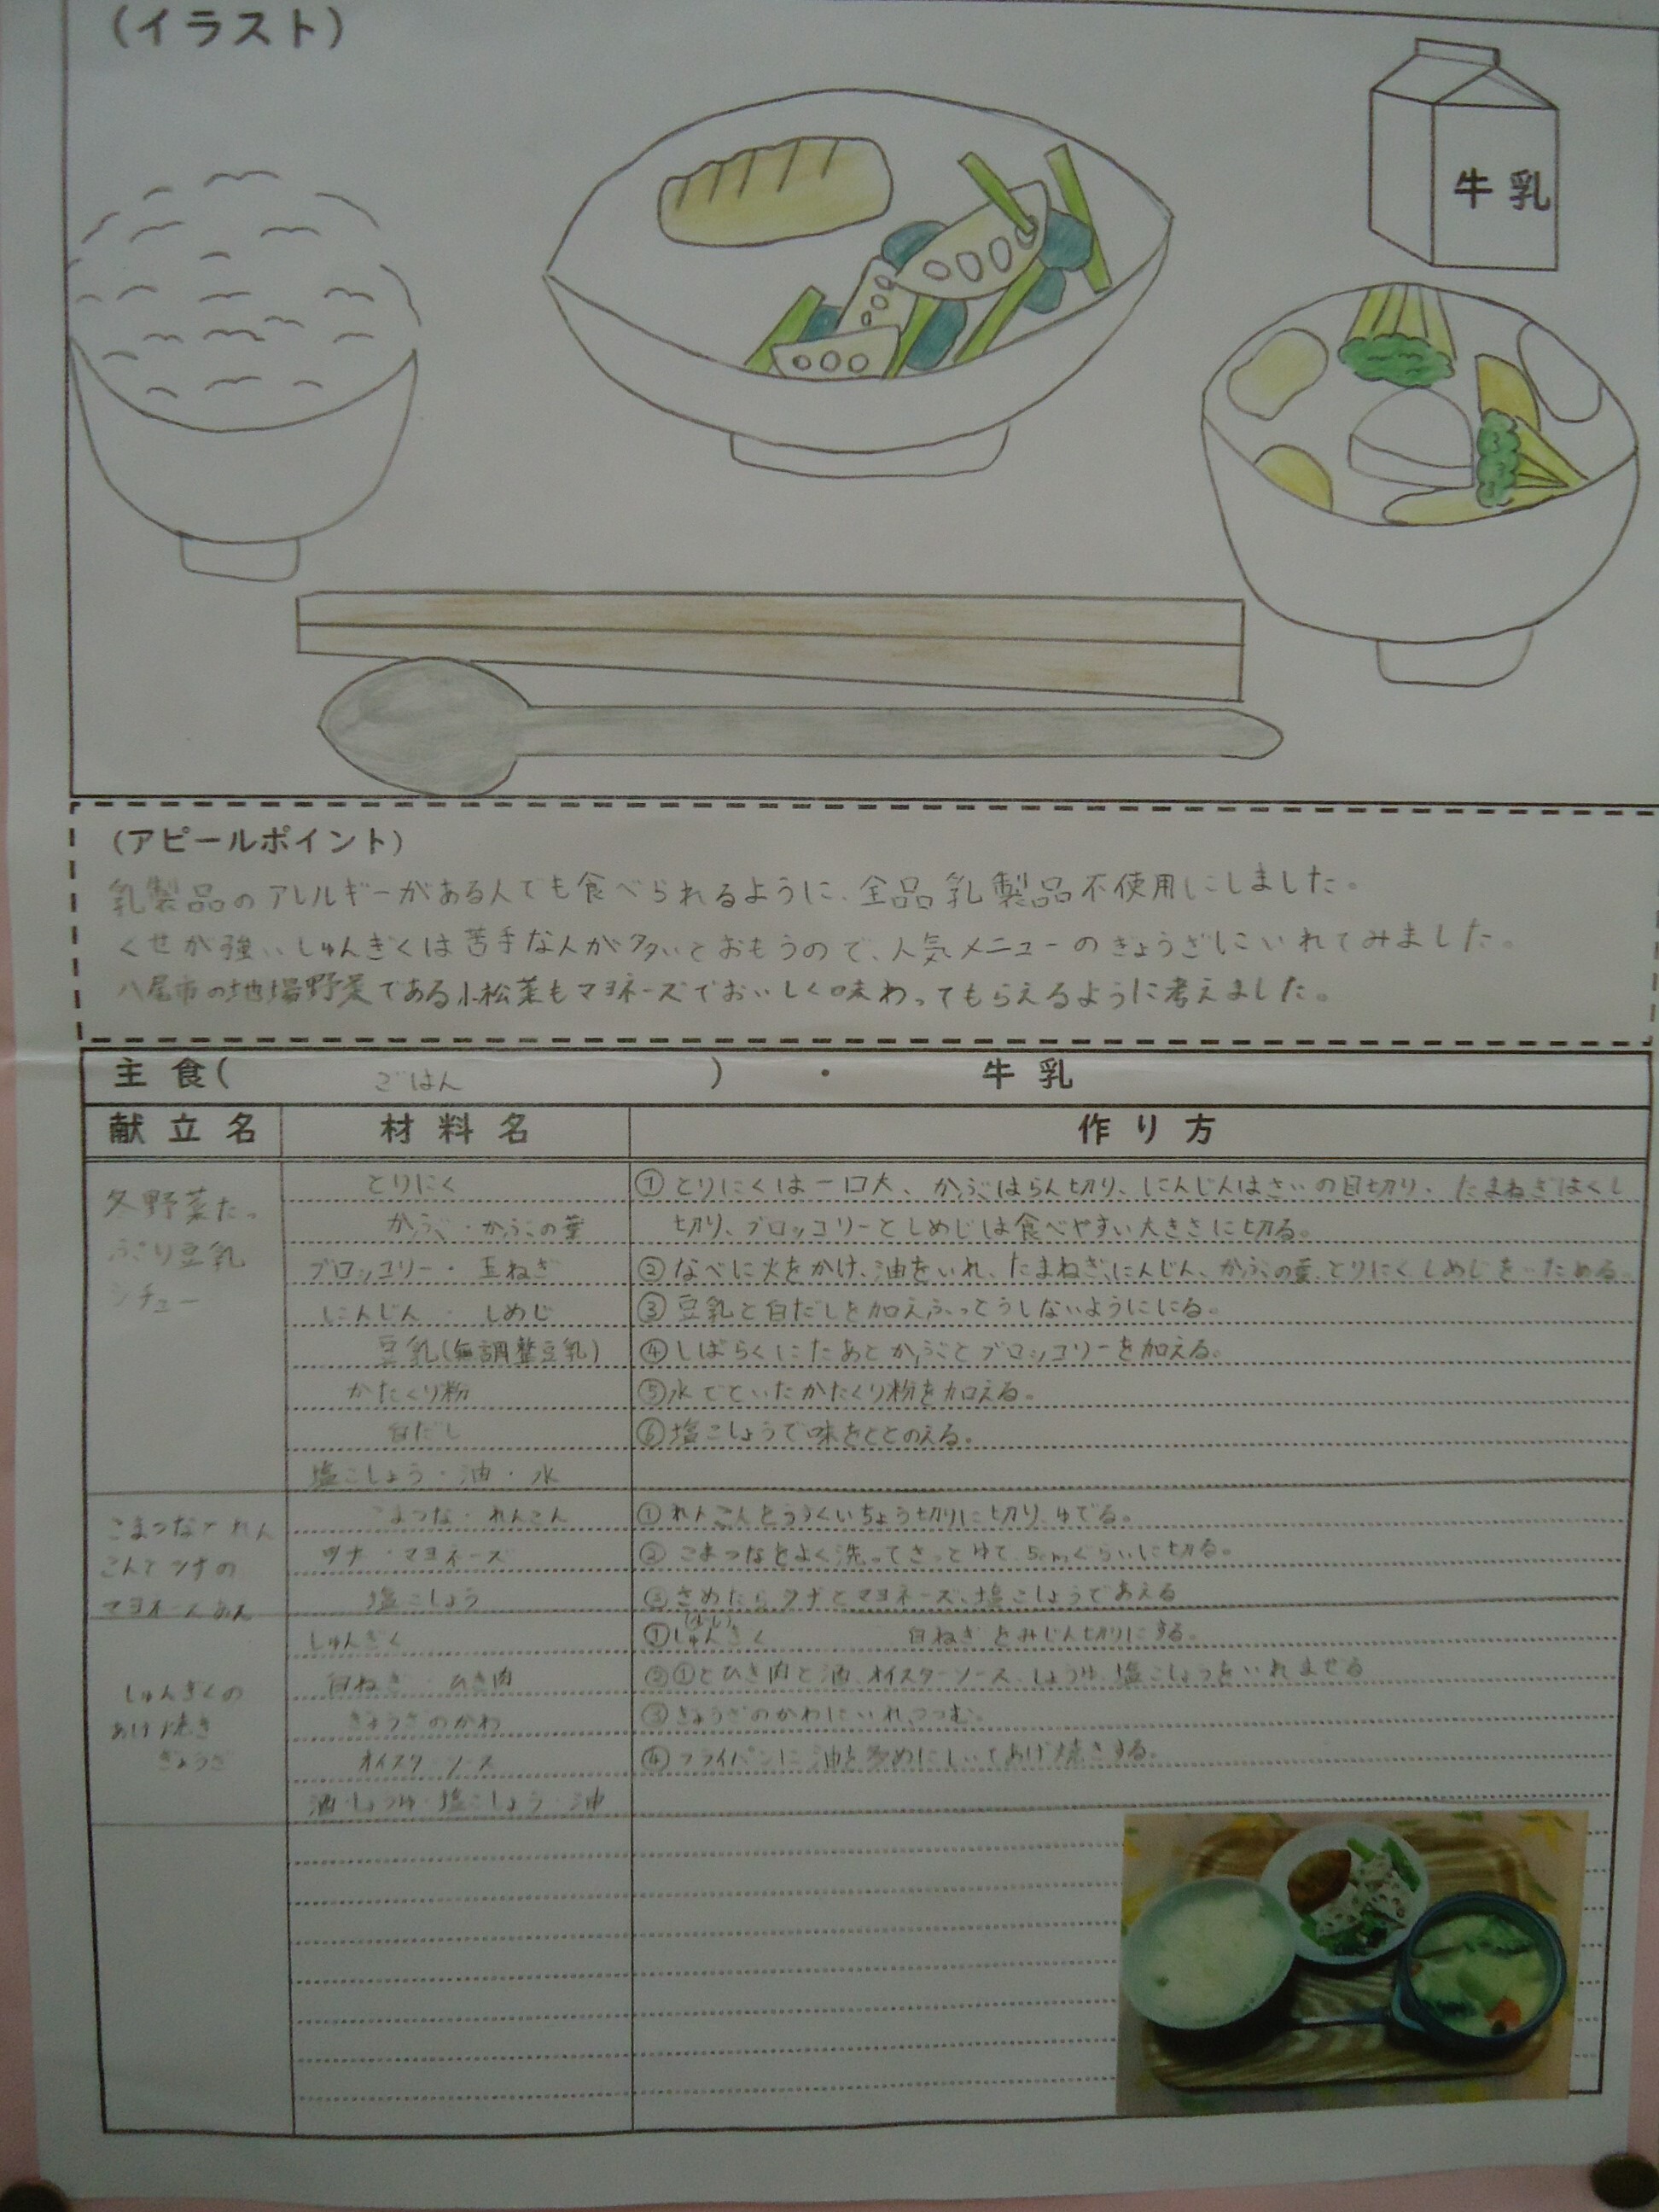 (イラスト)
牛乳
(アピールポイント)
乳製品のアレルギーがある人でも食べられるように、全品乳製品不使用にしました。
くせが強いしゅんぎくは苦手な人が多いとおもうので、人気メニューのぎょうざにいれてみました。
八尾市の地場野菜である小松菜もマヨネーズでおいしく味わってもらえるように考えました。
主食( ごはん ) ・ 牛乳
献立名 材料名 作り方
冬野菜たっ
ぷり豆乳
シチュー
とりにく
かぶ・かぶの葉
ブロッコリー・玉ねぎ
にんじん・しめじ
豆乳(無調整豆乳)
かたくり粉
白だし
塩こしょう・油・水
①とりにくは一口大、かぶはらん切り、にんじんはさいの目切り、たまねぎはくし
切り、ブロッコリーとしめじは食べやすい大きさに切る。
②なべに火をかけ、油をいれ、たまねぎ、にんじん、かぶの葉、とりにく、しめじをいためる。
③豆乳と白だしを加えふっとうしないようににる。
④しばらくにたあとかぶとブロッコリーを加える。
⑤水でといたかたくり粉を加える。
⑥塩こしょうで味をととのえる。
こまつなとれん
こんとツナの
マヨネーズあえ
こまつな・れんこん
ツナ・マヨネーズ
塩こしょう
①れんこんをうすくいちょう切りに切り、ゆでる。
②こまつなをよく洗ってさっとゆで、5cmぐらいに切る。
③さめたらツナとマヨネーズ、塩こしょうであえる
しゅんぎくの
あげ焼き
ぎょうざ
しゅんぎく
白ねぎ・ひき肉
ぎょうざのかわ
オイスターソース
酒・しょうゆ・塩こしょう・油
①しゅんぎく 白ねぎをみじん切りにする。
②①とひき肉と酒、オイスターソース、しょうゆ、塩こしょうをいれまぜる
③ぎょうざのかわにいれ、つつむ。
④フライパンに油を多めにしいてあげ焼きする。